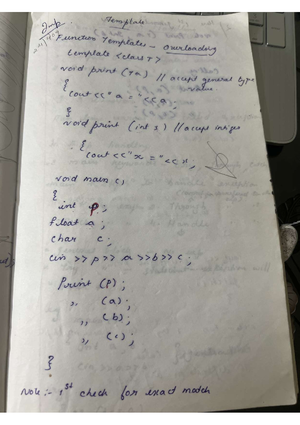 Imp.
Template
Function Templates - overloading
template <class T>
void print (T a) // accept general type
value
{
cout << "a = " << a;
}
void print (int x) // accept integer
{
cout << "x = " << x;
void main ()
{
int p;
float a;
char c;
cin >> p >> a >> b >> c;
Print (p);
,, (a);
,, (b);
,, (c);
}
Note :- 1st check for exact match